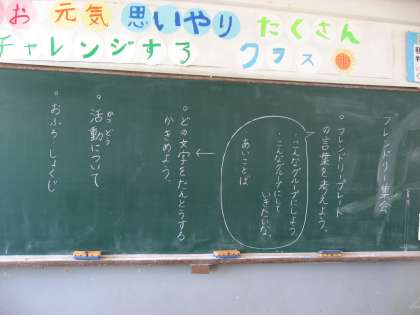 お 元気 思いやり たくさん
チャレンジする クラス
フレンドリー集会
○フレンドリープレート
の言葉を考えよう。
・こんなグループにしよう
・こんなグループにして
いきたいな。
・あいことば
○どの文字をたんとうする
かきめよう。
○活動について
かつどう
○おふろ しょくじ